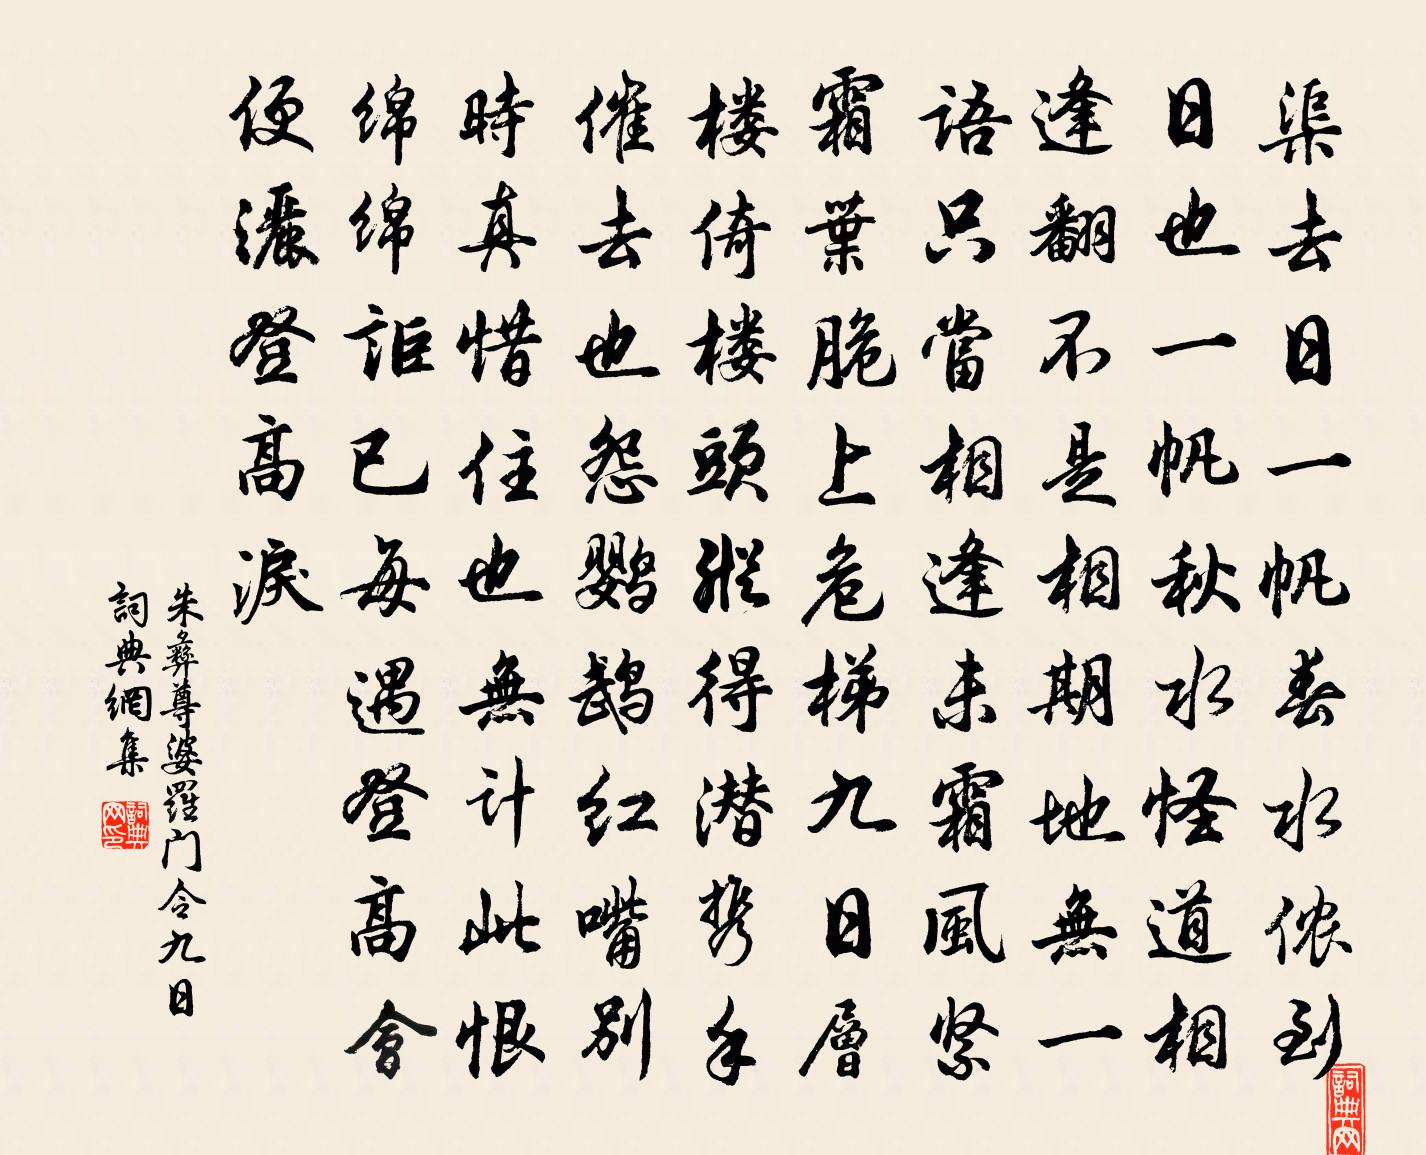 渠去日一帆春水侬到
日也一帆秋水怪道相
逢翻不是相期地無一
語只當相逢未霜風緊
霜葉脆上危梯九日層
楼倚楼頭縱得潜携手
催去也怨鹦鹉红嘴别
時真惜住也無计此恨
绵绵詎已每遇登高會
便灑登高淚
朱彝尊婆羅门令九日
詞典網集
詞典网印
詞典网